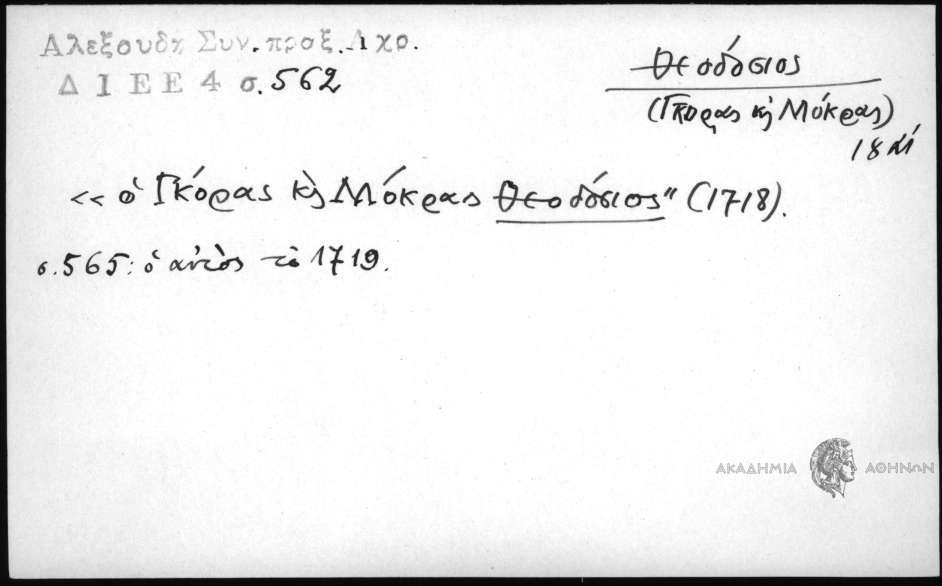 Αλεξουδη Συν.πραξ.Αχρ.
ΔΙΕΕ 4 σ. 562
Θεοδόσιος
(Γκόρας κ̀ Μόκρας)
18 αἰ
<< ὁ Γκόρας κ̀ Μόκρας Θεοδόσιος" (1718).
σ. 565: ὁ αὐτὸς τὸ 1719.
ΑΚΑΔΗΜΙΑ ΑΘΗΝΩΝ